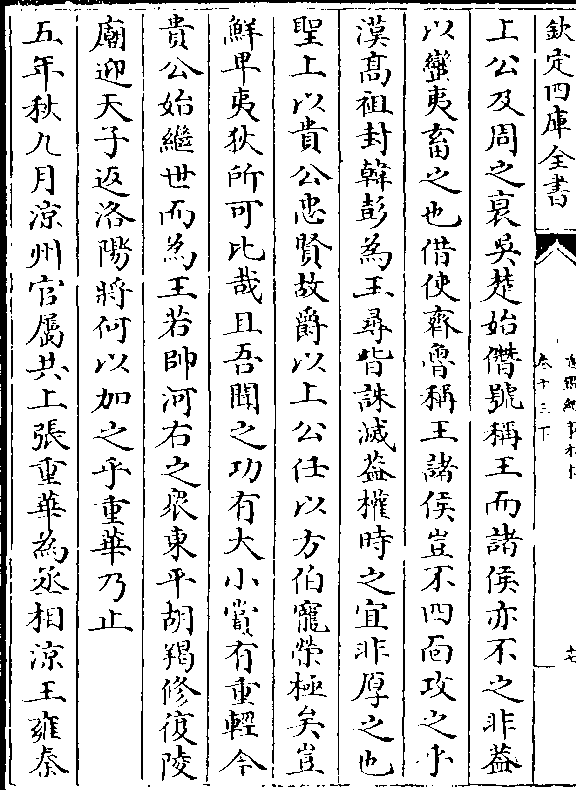 欽定四庫全書
卷十三下
上公及周之衰吳楚始僭號稱王而諸侯亦不之非蓋
以蠻夷畜之也借使齊魯稱王諸侯豈不四面攻之乎
漢髙祖封韓彭為王尋皆誅滅葢權時之宜非厚之也
聖上以貴公忠賢故爵以上公任以方伯寵榮極矣豈
鮮卑夷狄所可比哉且吾聞之功有大小賞有重輕今
貴公始繼世而為王若帥河右之衆東平胡羯修復陵
廟迎天子返洛陽將何以加之乎重華乃止
五年秋九月涼州官屬共上張重華為丞相涼王雍秦